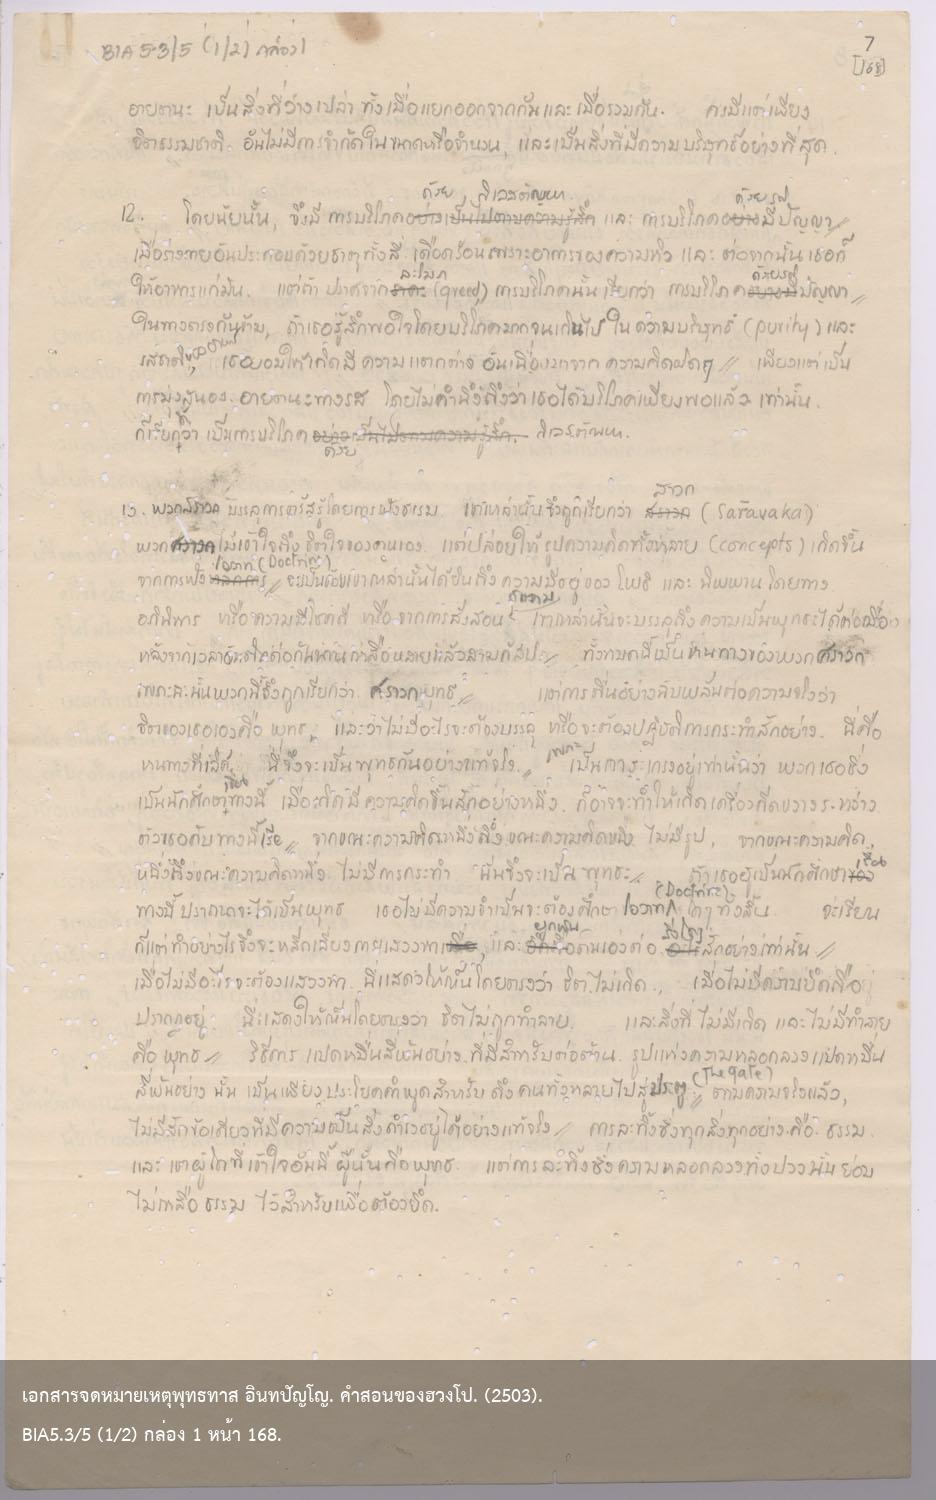 BIA 5.3/5 (1/2) กล่อง 1
7
[168]
อายตนะ เป็นสิ่งที่ว่างเปล่า ทั้งเมื่อแยกออกจากกันและเมื่อรวมกัน. คงมีแต่เพียง
จิตธรรมชาติ อันไม่มีการจำกัดในขนาดหรือจำนวน, และเป็นสิ่งที่มีความบริสุทธิ์อย่างที่สุด.
ด้วย กิเลสตัณหา ด้วย
12. โดยนัยนั้น, จึงมี การบริโภคอย่างเป็นไปตามความรู้สึก และ การบริโภคอย่างมีปัญญา //
เมื่อร่างกายอันประกอบด้วยธาตุทั้งสี่ เดือดร้อนเพราะอาการของความหิว และ ต่อจากนั้น เธอก็
ให้อาหารแก่มัน. แต่ถ้า ปราศจาก (greed) การบริโภคนั้น เรียกว่า การบริโภค ปัญญา //
ในทางตรงกันข้าม, ถ้าเธอรู้สึกพอใจโดยบริโภคมากจนเกินไป ใน ความบริสุทธิ์ (purity) และ
รสชาติของอาหาร, เธอยอมให้เกิดมี ความแตกต่าง อันเนื่องมาจาก ความคิดผิดๆ // เพียงแต่เป็น
การมุ่งสนอง อายตนะทางรส โดยไม่คำนึงถึงว่า เธอได้บริโภคเพียงพอแล้ว เท่านั้น.
ก็เรียกว่า เป็นการบริโภค ด้วย กิเลสตัณหา.
สาวก
13. พวกสราวก บรรลุการตรัสรู้โดยการฟังธรรม เขาเหล่านั้นจึงถูกเรียกว่า สราวก (Saravaka)
พวกสราวกไม่เข้าใจถึง จิตใจของตนเอง แต่ปล่อยให้ รูปความคิดทั้งหลาย (concepts) เกิดขึ้น
โอวาท (Doctrine)
จากการฟัง // เขาเหล่านั้นได้ยินถึง ความมีอยู่ของ โพธิ และ นิพพาน โดยทาง
อภินิหาร หรือความมีโชคดี หรือ จากการสั่งสอน เขาเหล่านั้นจะบรรลุถึง ความเป็นพุทธะได้ต่อเมื่อ
หลังจากเวลา // ทั้งหมดนี้เป็นหนทางของพวกสราวก
เพราะฉะนั้นพวกนี้จึงถูกเรียกว่า สราวกพุทธ // แต่การตื่นอย่างฉับพลันต่อความจริงว่า
จิตของเธอเองคือ พุทธ, และว่าไม่มีอะไรจะต้องบรรลุ หรือจะต้องปฏิบัติการกระทำสักอย่าง. นี่คือ
หนทางที่เลิศ. นี่จึงจะเป็นพุทธกันอย่างแท้จริง. // เป็นการเกรงอยู่เท่านั้นว่า พวกเธอซึ่ง
เป็นนักศึกษาทางนี้ เมื่อเกิดมีความคิดขึ้นสักอย่างหนึ่ง, ก็อาจจะทำให้เกิดเครื่องกีดขวางระหว่าง
ตัวเธอกับทางนี้เสีย // จากขณะความคิดหนึ่งถึงขณะความคิดหนึ่ง ไม่มีรูป, จากขณะความคิด
หนึ่งถึงขณะความคิดหนึ่ง ไม่มีการกระทำ นั่นจึงจะเป็น พุทธะ // ถ้าเธอผู้เป็นนักศึกษา
(Doctrine)
ทางนี้ ปรารถนาจะได้เป็นพุทธ เธอไม่มีความจำเป็นจะต้องศึกษา โอวาท ใดๆ ทั้งสิ้น จงเรียน
ก็แต่ทำอย่างไรจึงจะหลีกเลี่ยงการแสวงหา, และ ตนเองต่อ สักอย่างเท่านั้น //
เมื่อไม่มีอะไรจะต้องแสวงหา นี่แสดงให้เห็นโดยตรงว่า จิตไม่เกิด, เมื่อไม่มีความยึดถือ
ปรากฏอยู่ นี่จะแสดงให้เห็นโดยตรงว่า จิตไม่ถูกทำลาย. และสิ่งที่ ไม่มีเกิด และ ไม่มีทำลาย
คือ พุทธ // วิธีการ แปดหมื่นสี่พันอย่าง ที่มีสำหรับต่อต้าน รูปแห่งความหลอกลวง แปดหมื่น
(The gate)
สี่พันอย่าง นั้น เป็นเพียงประโยคคำพูดสำหรับ ดึง คนทั้งหลายไปสู่ประตู // ตามความจริงแล้ว,
ไม่มีสักข้อเดียวที่มีความเป็นสิ่งดำรงอยู่ได้อย่างแท้จริง // การละทิ้งซึ่งทุกสิ่งทุกอย่าง คือ ธรรม
และ เขาผู้ใดที่เข้าใจอันนี้ ผู้นั้นคือพุทธ. แต่การละทิ้งซึ่งความหลอกลวงทั้งปวงนั้น ย่อม
ไม่เหลือ ธรรม ไว้สำหรับเพื่อต้องยึด.
เอกสารจดหมายเหตุพุทธทาส อินทปัญโญ. คำสอนของฮวงโป. (2503).
BIA5.3/5 (1/2) กล่อง 1 หน้า 168.